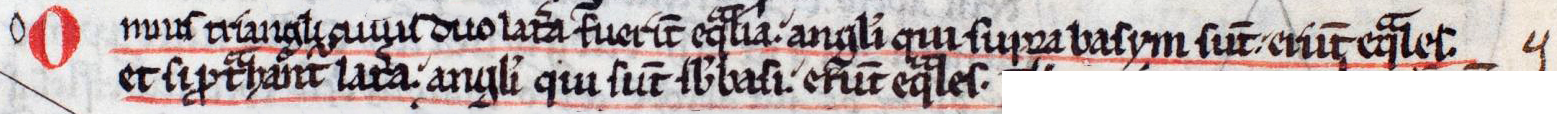 Omnis triangl'i cuius duo lat̃a fuerĩt eqͣlia · angl'i qui supra basym sũt · erũt eqͣles · 5
et si ꝓtͣhant̃ lat̃a · angl'i qui sũt sb̾ basi · erũt eqͣles ·